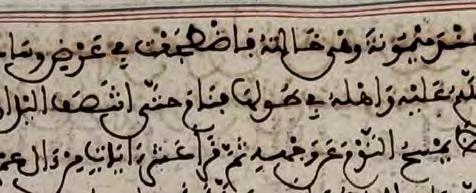 عند ميمونة وهي خالته فاضطجعت في عرض وسا
عليه واهله في طولها فنام حتى انتصف اليل او
يمسح النوم عن وجهه ثم قرا عشر ايات من ال عم